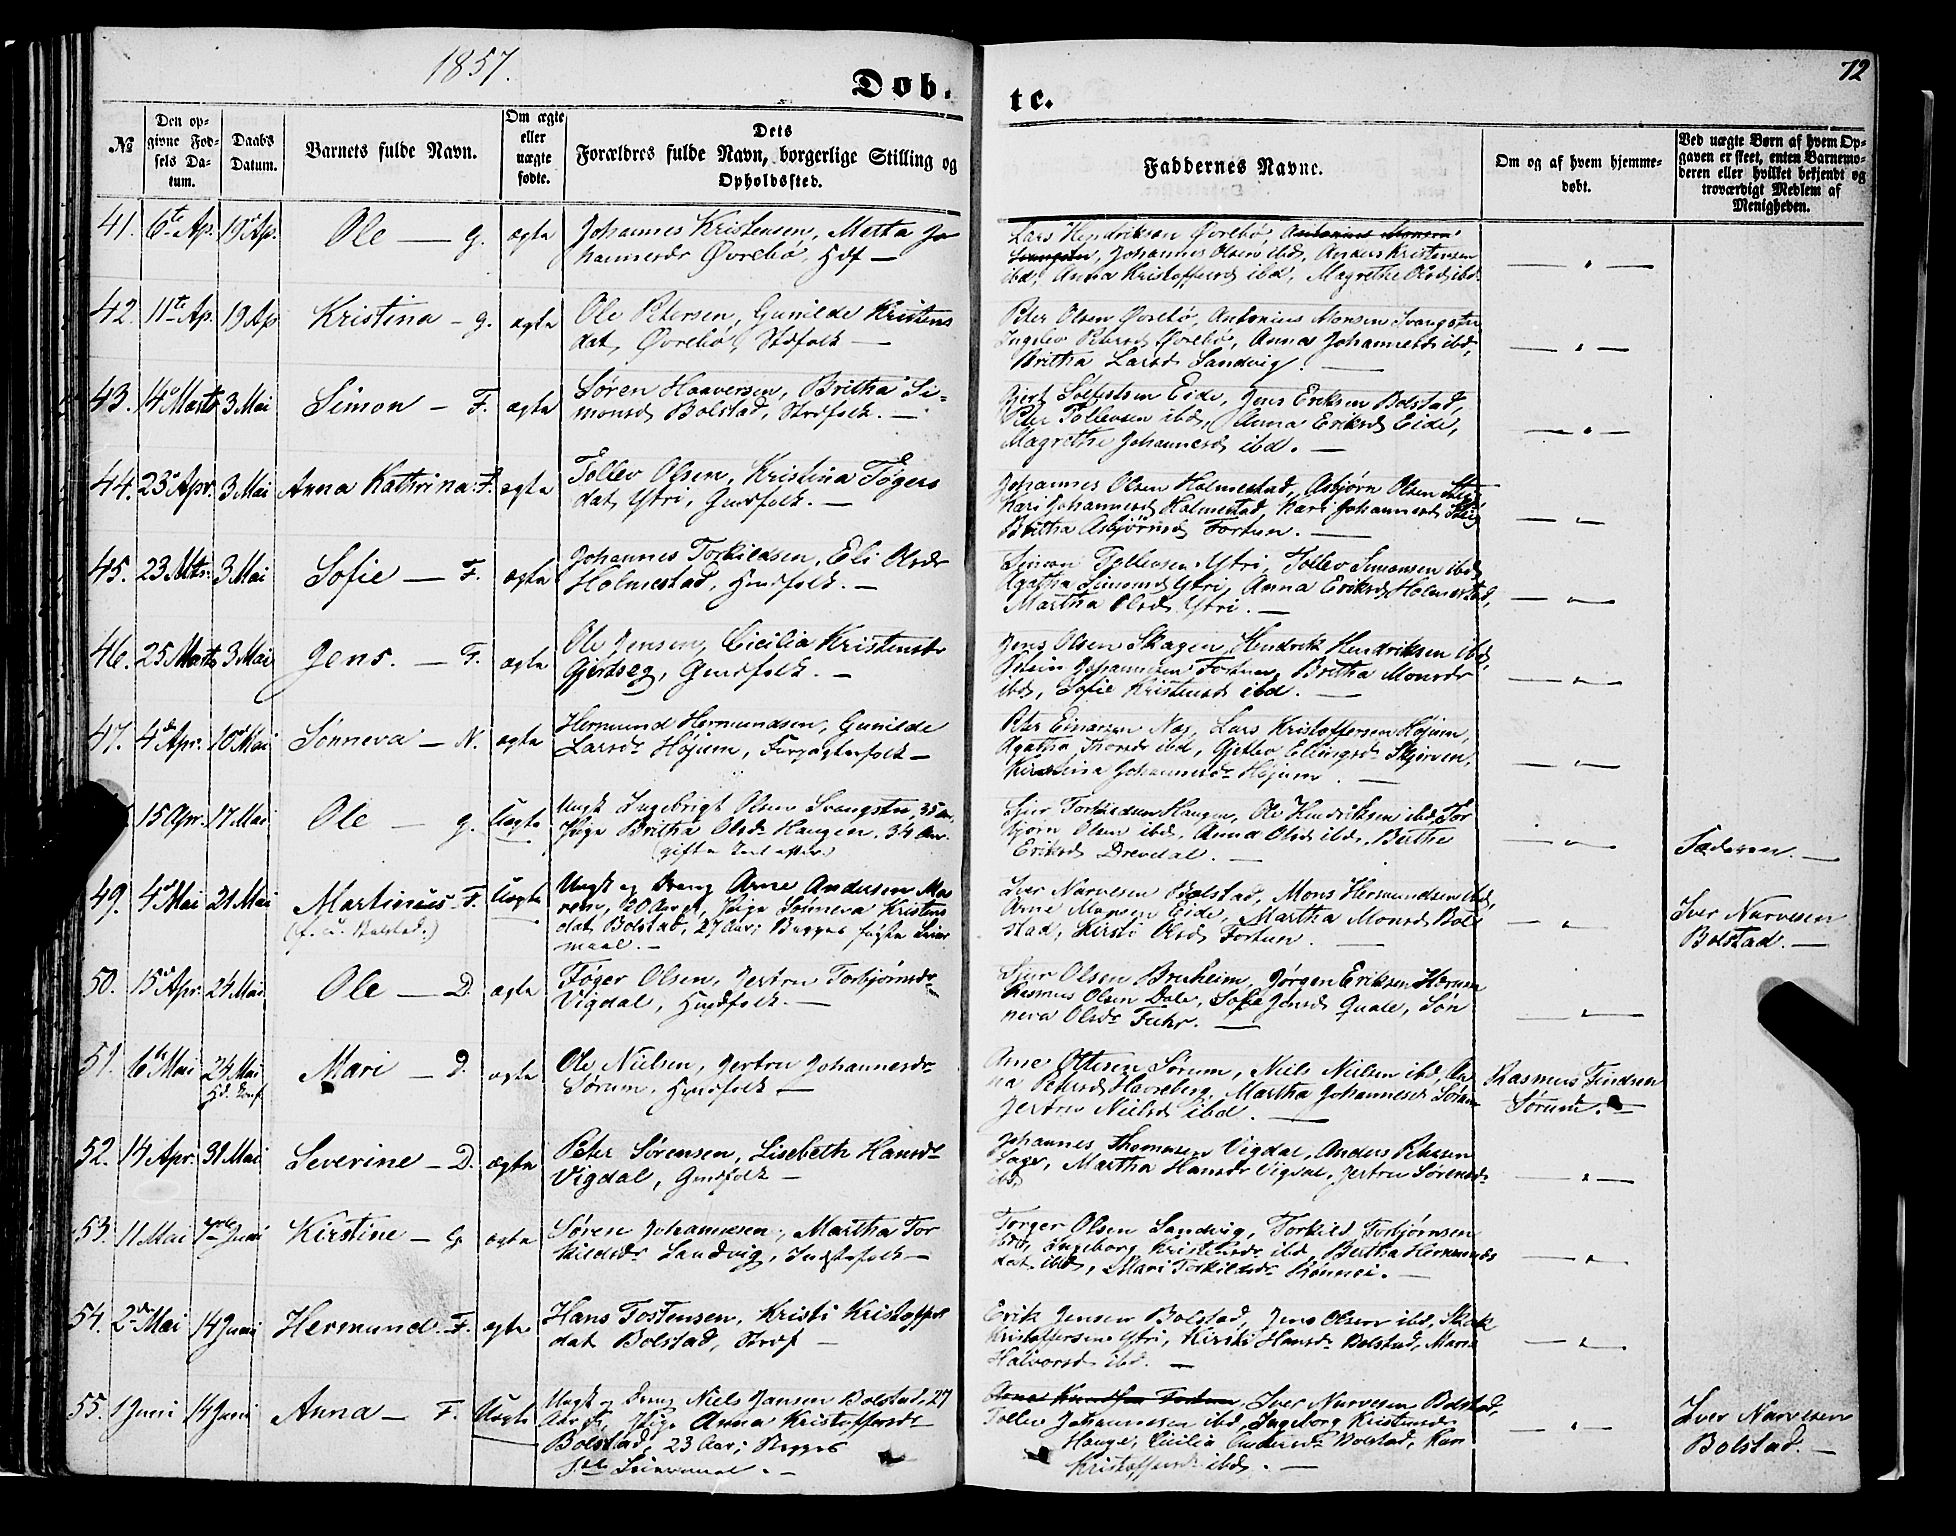 1857.
72
Døb-
te.
№
Den op-
givne Fød-
sels Da-
tum.
Daabs
Datum.
Barnets fulde Navn.
Om ægte
eller
uægte
fødte.
Dets
Forældres fulde Navn, borgerlige Stilling og
Opholdssted.
Faddernes Navne.
Om og af hvem hjemme-
døbt.
Ved uægte Børn af hvem Op-
gaven er skeet, enten Barnemo-
deren eller hvilket bekjendt og
troværdigt Medlem af
Menigheden.
41. 6te Ap. 19 Ap. Ole — G. ægte
Johannes Kristensen, Metta Jo
hannesdr Øvrebø, Hdf —
Lars Hendriksen Øvrebø, Antonius Monsen
Svangstu, Johannes Olsen ibd, Anders Kristensen
ibd, Anna Kristoffersd ibd, Magrethe Olsd ibd.
42. 11te Ap. 19 Ap Kristina — G. ægte
Ole Petersen, Gunilde Kristens
dat, Øvrebø, Stdfolk —
Peter Olsen Øvrebø, Antonius Monsen Svangstu,
Ingelev Petersd Øvrebø, Anna Johannesd ibd,
Britha Larsd Sandvig. —
43. 14 Marts 3 Mai Simon — F. ægte
Søren Haaversen, Britha Si-
monsd Bolstad, Strdfolk. —
Gjert Solfestsen Eide, Jens Eriksen Bolstad,
Peter Tollevsen ibd, Anna Eriksd Eide,
Magrethe Johannesd ibd. —
44. 23 Apr. 3 Mai Anna Kathrina F. ægte
Tollev Olsen, Kristina Føgers
dat Ytri, Gmdfolk. —
Johannes Olsen Holmestad, Asbjørn Olsen
Kari Johannesd Holmestad, Kari Johannesd
Britha Asbjørnsd Fortun. —
45. 23 Mts. 3 Mai Sofie — F. ægte
Johannes Torkildsen, Eli Olsdr
Holmestad, Hmdfolk. —
Simon Tollevsen Ytri, Tollev Simonsen ibd,
Agatha Simonsd Ytri, Anna Eriksd Holmestad,
Martha Olsd Ytri. —
46. 25 Marts 3 Mai Jens. — F. ægte
Ole Jensen, Cicilia Kristensdr
Gjerdseg, Gmdfolk. —
Jens Olsen Skagen, Hendrik Hendriksen ibd,
Johannesen Fortun, Britha Monsdr
ibd, Sofie Kristensd ibd. —
47. 4 Apr. 10 Mai Sønneva — N. ægte
Hermund Hermundsen, Gunilde
Larsdr Højum, Forpagterfolk —
Peter Einarsen Næs, Lars Kristoffersen Højum,
Agatha Thorsd ibd, Gjetlev Ellingsdr Skjørven,
Kirstina Johannesdr Højum. —
15 Apr. 17 Mai Ole — G. Uægte
Ungk Ingebrigt Olsen Svangstu, 35 Aar,
Pige Britha Olsdr Haugen, 34 Aar.
Sjur Torkildsen Haugen, Ole Hendriksen ibd, Tor
bjørn Olsen ibd, Anna Olsd ibd, Britha
Eriksd Drevdal. —
Faderen. —
49. 4 Mai 21 Mai Martinus F. Uægte
Bolstad.)
Ungk og Dreng Arne Andersen
20 Aar gl, Pige Sønneva Kristens
dat Bolstad, 27 Aar; Begges første Leier
maal. —
Iver Narvesen Bolstad, Mons Hermundsen ibd,
Arne Monsen Eide, Martha Monsd Bol
stad, Kirsti Olsd Fortun. —
Iver Narvesen
Bolstad. —
50. 15 Apr. 24 Mai Ole — D. ægte
Føger Olsen, Jertru Torbjørnsdr
Vigdal, Hmdfolk. —
Sjur Olsen Bruheim, Jørgen Eriksen
Rasmus Olsen Dale, Sofie Jensd Quale, Søn
neva Olsdr Fuhr. —
51. 6te Mai 24 Mai Mari — D. ægte
Ole Nielsen, Jertru Johannesdr
Sørum, Hmdfolk —
Arne Ottesen Sørum, Niels Nielsen ibd, An
na Petersd Havreberg, Martha Johannesd Sørum
Jertru Nielsd ibd. —
Rasmus
Sørum. —
52. 14 Apr. 31 Mai Severine — D. ægte
Peter Sørensen, Lisebeth Hansdr
Vigdal, Gmdfolk —
Johannes Thomasen Vigdal, Anders Petersen
Martha Hansdr Vigdal, Jertru Sørensd
ibd
53. 11 Mai 1 Juni Kirstine — G. ægte
Søren Johannesen, Martha Tor
kildsdr Sandvig, Indstefolk —
Torger Olsen Sandvig, Torkild Torbjørnsen
ibd, Ingeborg Kristensdr ibd, Britha Hermunds
dat ibd, Mari Torkildsdr Rønnei. —
54. 2den Mai 14 Juni Hermund F. ægte
Hans Tostensen, Kristi Kristoffers
dat Bolstad, Strdf —
Erik Jensen Bolstad, Jens Olsen ibd,
Kristoffersen Ytri, Kirsti Hansdr Bolstad, Mari
Halvorsd ibd. —
55. 1 Juni 14 Juni Anna — F. Uægte
Ungk og Dreng Niels Jansen Bolstad, 27
Aar gl, Pige Anna Kristoffersdr
Bolstad, 23 Aar; Begges
1ste Leiermaal. —
Arne Knudsen Fortun, Iver Narvesen Bolstad,
Tollev Johannesen ibd, Ingeborg Kristensdr
Hauge, Cicilia Bolstad, Kari
Kristoffersdr ibd. —
Iver Narvesen
Bolstad. —